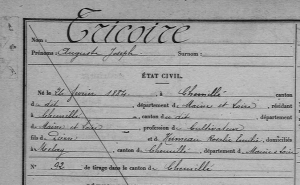 Nom : Tricoire
Prénoms : Auguste Joseph Surnom :
ÉTAT CIVIL.
Né le 24 février 1884, à Chemillé, canton
dudit, département de Maine et Loire, résidant
à Chemillé, canton dudit, département de
Maine et Loire, profession de Cultivateur
fils de Pierre et de Humeau Rosalie Emilie, domiciliés à
Melay, canton de Chemillé, département de Maine & Loire
N° 92 de tirage dans le canton de Chemillé